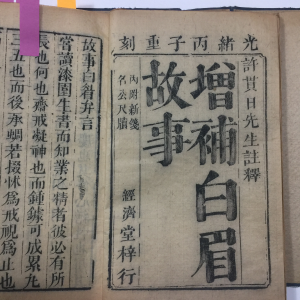 光緒丙子重刻
許貫日先生註釋
增補白眉
故事
內附新鐫
名公尺牘
經濟堂梓行
故事白眉弁言
嘗讀漆園生書而知業之精者彼必有所
長也何也齋戒凝神也而鐻鐻可成累九
三五也而後承蜩若掇怵為戒視為止也